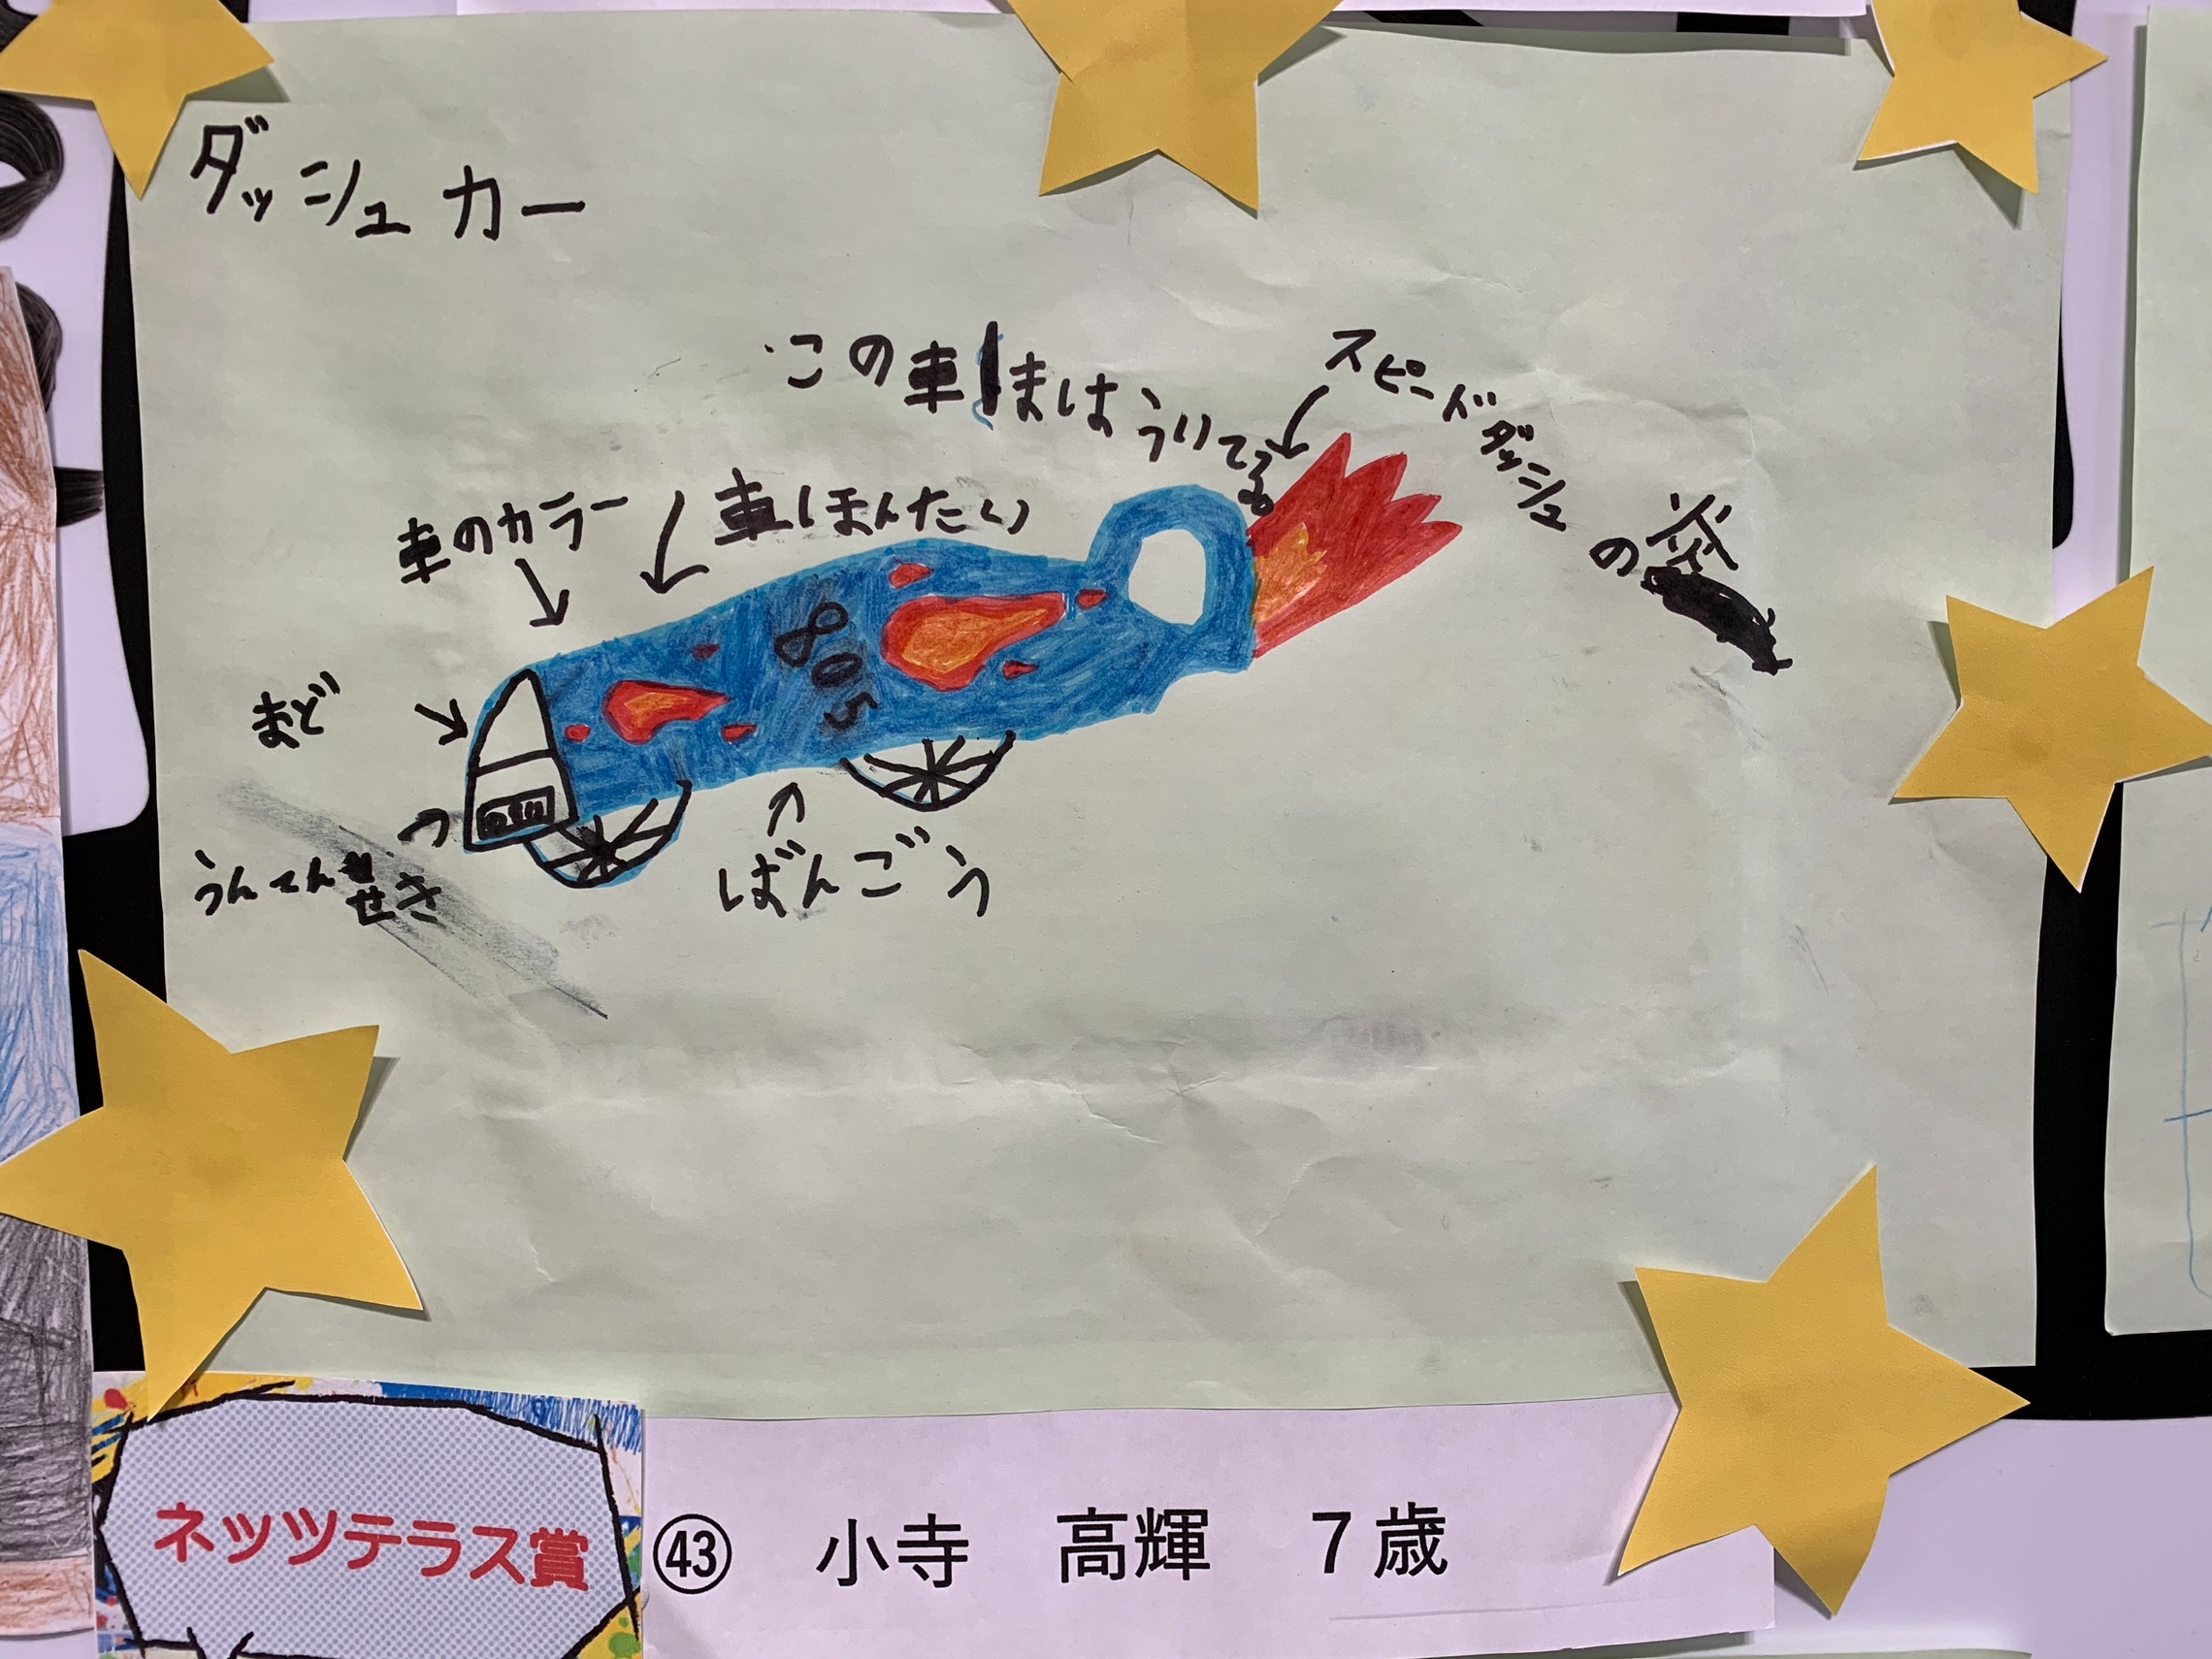 ダッシュカー
この車はういてる
スピードダッシュの炎
車のカラー
車ほんたい
805
まど
うんてんせき
ばんごう
ネッツテラス賞
㊸ 小寺 高輝 7歳